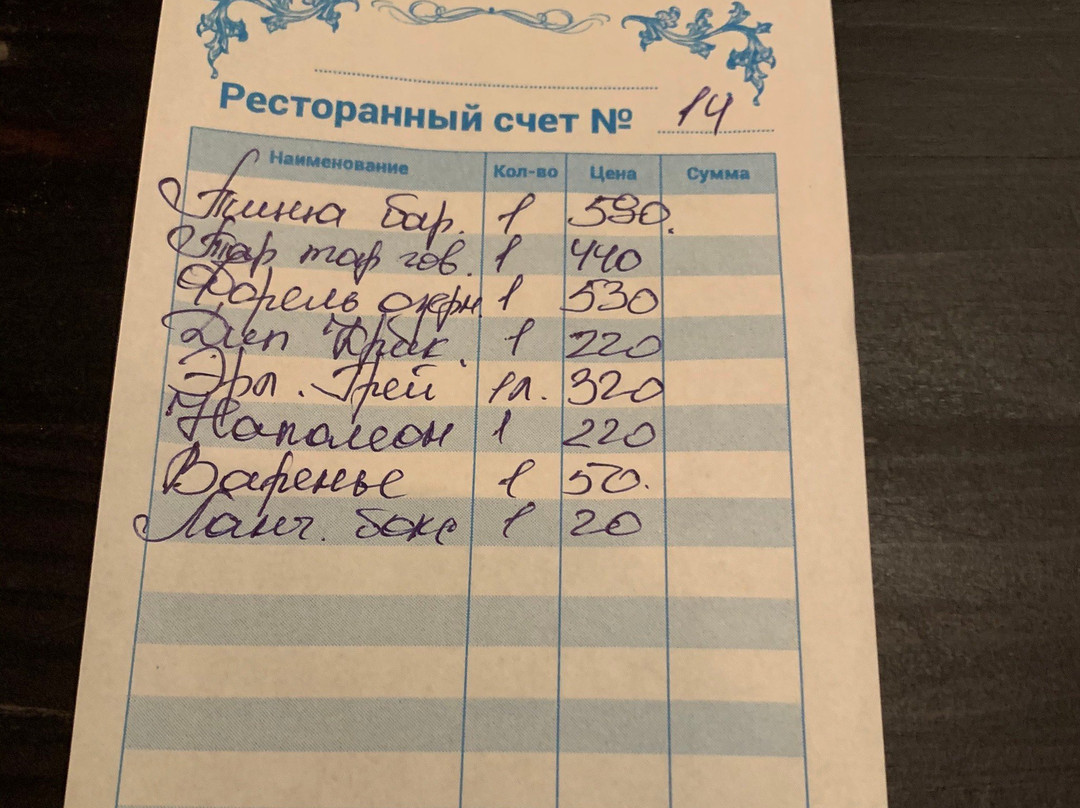 Ресторанный счет № 14
Наименование Кол-во Цена Сумма
бар. 1 590.
Тар тар гов. 1 440
Форель 1 530
Дип 1 220
Эрл. Грей 1л. 320
Наполеон 1 220
Варенье 1 50.
Ланч. бокс 1 20